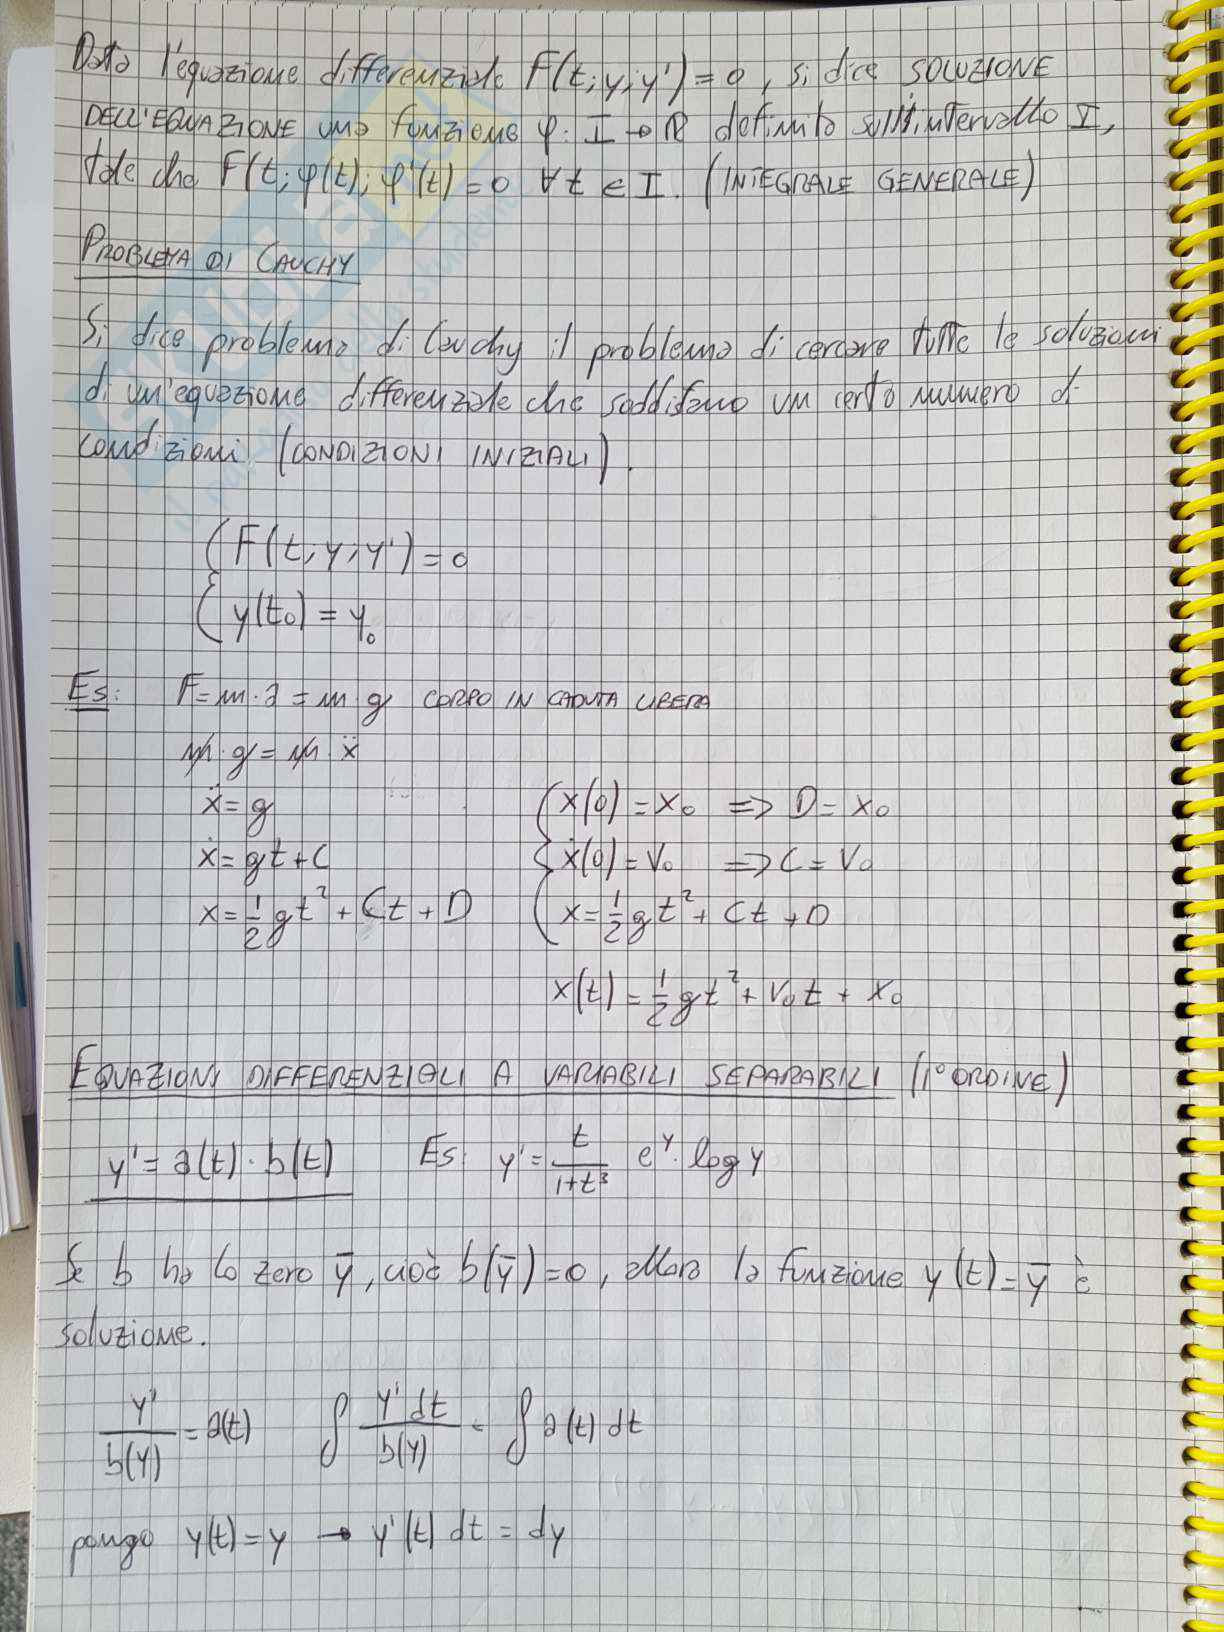 Data l'equazione differenziale F(t; y; y') = 0, si dice SOLUZIONE
DELL'EQUAZIONE una funzione φ: I → ℝ definita sull'intervallo I,
tale che F(t; φ(t); φ'(t) = 0 ∀ t ∈ I. (INTEGRALE GENERALE)
PROBLEMA DI CAUCHY
Si dice problema di Cauchy il problema di cercare tutte le soluzioni
di un'equazione differenziale che soddisfano un certo numero di
condizioni (CONDIZIONI INIZIALI).
{ F(t; y; y') = 0
{ y(t₀) = y₀
Es: F = m · a = m · g CORPO IN CADUTA LIBERA
m · g = m · ẍ
ẍ = g { x(0) = x₀ => D = x₀
ẋ = gt + C { ẋ(0) = v₀ => C = v₀
x = 1/2 gt² + Ct + D { x = 1/2 gt² + Ct + D
x(t) = 1/2 gt² + v₀t + x₀
EQUAZIONI DIFFERENZIALI A VARIABILI SEPARABILI (1° ORDINE)
y' = a(t) · b(t) Es: y' = t/(1+t³) e^y · log y
Se b ha lo zero ȳ, cioè b(ȳ) = 0, allora la funzione y(t) = ȳ è
soluzione.
y'/b(y) = a(t) ∫ y' dt/b(y) = ∫ a(t) dt
pongo y(t) = y → y'(t) dt = dy